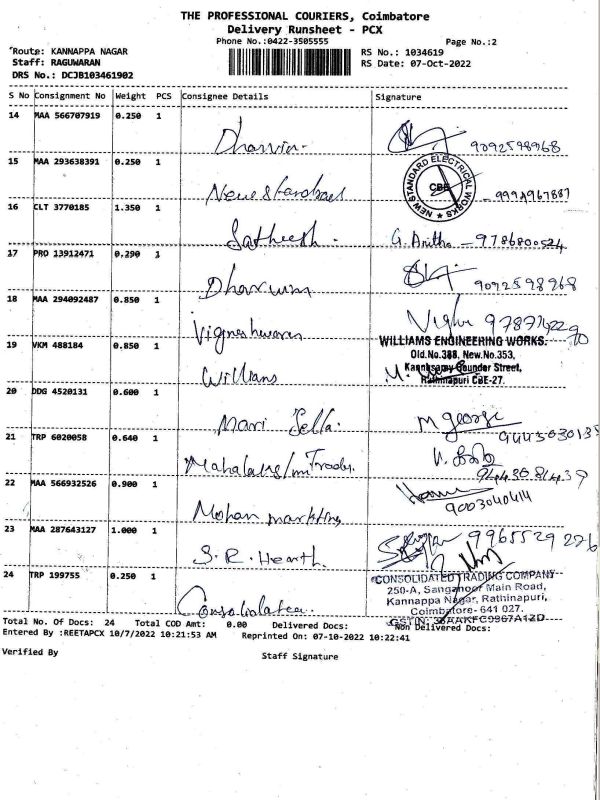 THE PROFESSIONAL COURIERS, Coimbatore
Delivery Runsheet - PCX
Phone No.:0422-3505555
Page No.:2
Route: KANNAPPA NAGAR
RS No.: 1034619
Staff: RAGUWARAN
RS Date: 07-Oct-2022
DRS No.: DCJB103461902
S No Consignment No Weight PCS Consignee Details Signature
14 MAA 566707919 0.250 1
9092598968
15 MAA 293638391 0.250 1
NEW STANDARD ELECTRICAL WORKS ★ CBE
16 CLT 3770185 1.350 1
Satheesh. G. Anitha - 9786800524
17 PRO 13912471 0.290 1
Dharum 9092598968
18 MAA 294092487 0.850 1
Vigneshwaran
19 VKM 488184 0.850 1
WILLIAMS ENGINEERING WORKS.
Old.No.388, New.No.353,
Kannusamy Gounder Street,
Rathinapuri CBE-27.
Willians
20 DDG 4520131 0.600 1
Mari Sella. M george
21 TRP 6020058 0.640 1
22 MAA 566932526 0.900 1
Mohan marketing 9003040414
23 MAA 287643127 1.000 1
S.R. Hearth. 9965529226
24 TRP 199755 0.250 1
CONSOLIDATED TRADING COMPANY
250-A, Sanganoor Main Road,
Kannappa Nagar, Rathinapuri,
Coimbatore- 641 027.
Total No. Of Docs: 24 Total COD Amt: 0.00 Delivered Docs: Non Delivered Docs:
Entered By :REETAPCX 10/7/2022 10:21:53 AM Reprinted On: 07-10-2022 10:22:41
Verified By
Staff Signature